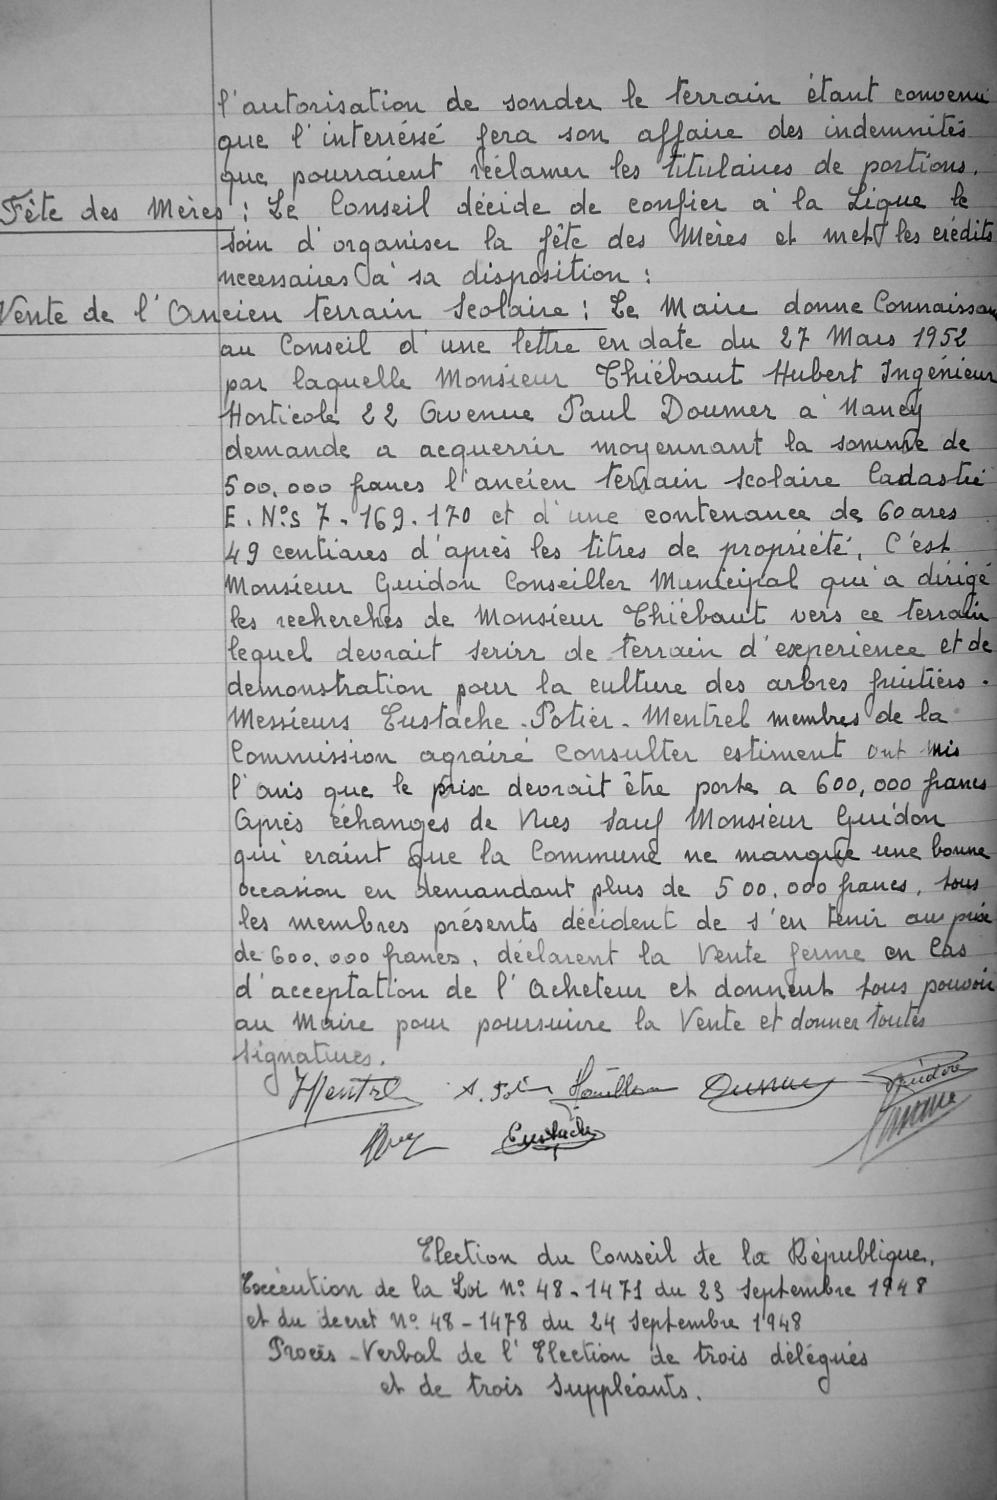 l'autorisation de sonder le terrain étant convenu
que l'interréssé fera son affaire des indemnités
que pourraient réclamer les titulaires de portions.
Fête des Mères : Le Conseil décide de confier à la Ligue le
soin d'organiser la fête des Mères et met les crédits
necessaires à sa disposition :
Vente de l'Ancien terrain Scolaire : Le Maire donne Connaissan
au Conseil d'une lettre en date du 27 Mars 1952
par laquelle Monsieur Thiébaut Hubert Ingénieur
Horticole 22 Avenue Paul Doumer à Nancy
demande a acquerrir moyennant la somme de
500.000 francs l'ancien terrain scolaire Cadastré
E. N°s 7-169-170 et d'une contenance de 60 ares
49 centiares d'après les titres de propriété. C'est
Monsieur Guidon Conseiller Municipal qui a dirigé
les recherches de Monsieur Thiébaut vers ce terrain
lequel devrait serirr de terrain d'experience et de
demonstration pour la culture des arbres fruitiers.
Messieurs Eustache - Potier - Mentrel membres de la
Commission agraire consulter estiment ont mis
l'avis que le prix devrait être porte a 600,000 francs
Après échanges de Vues sauf Monsieur Guidon
qui craint que la Commune ne manque une bonne
occasion en demandant plus de 500.000 francs, tous
les membres présents décident de s'en tenir au prix
de 600.000 francs, déclarent la Vente ferme en Cas
d'acceptation de l'Acheteur et donnent tous pouvoir
au Maire pour poursuivre la Vente et donner toutes
signatures.
Mentrel Guidon
Eustache
Election du Conseil de la République.
Exécution de la Loi N° 48-1471 du 23 Septembre 1948
et du decret N° 48-1478 du 24 Septembre 1948
Procès-Verbal de l'Election de trois délégués
et de trois Suppléants.